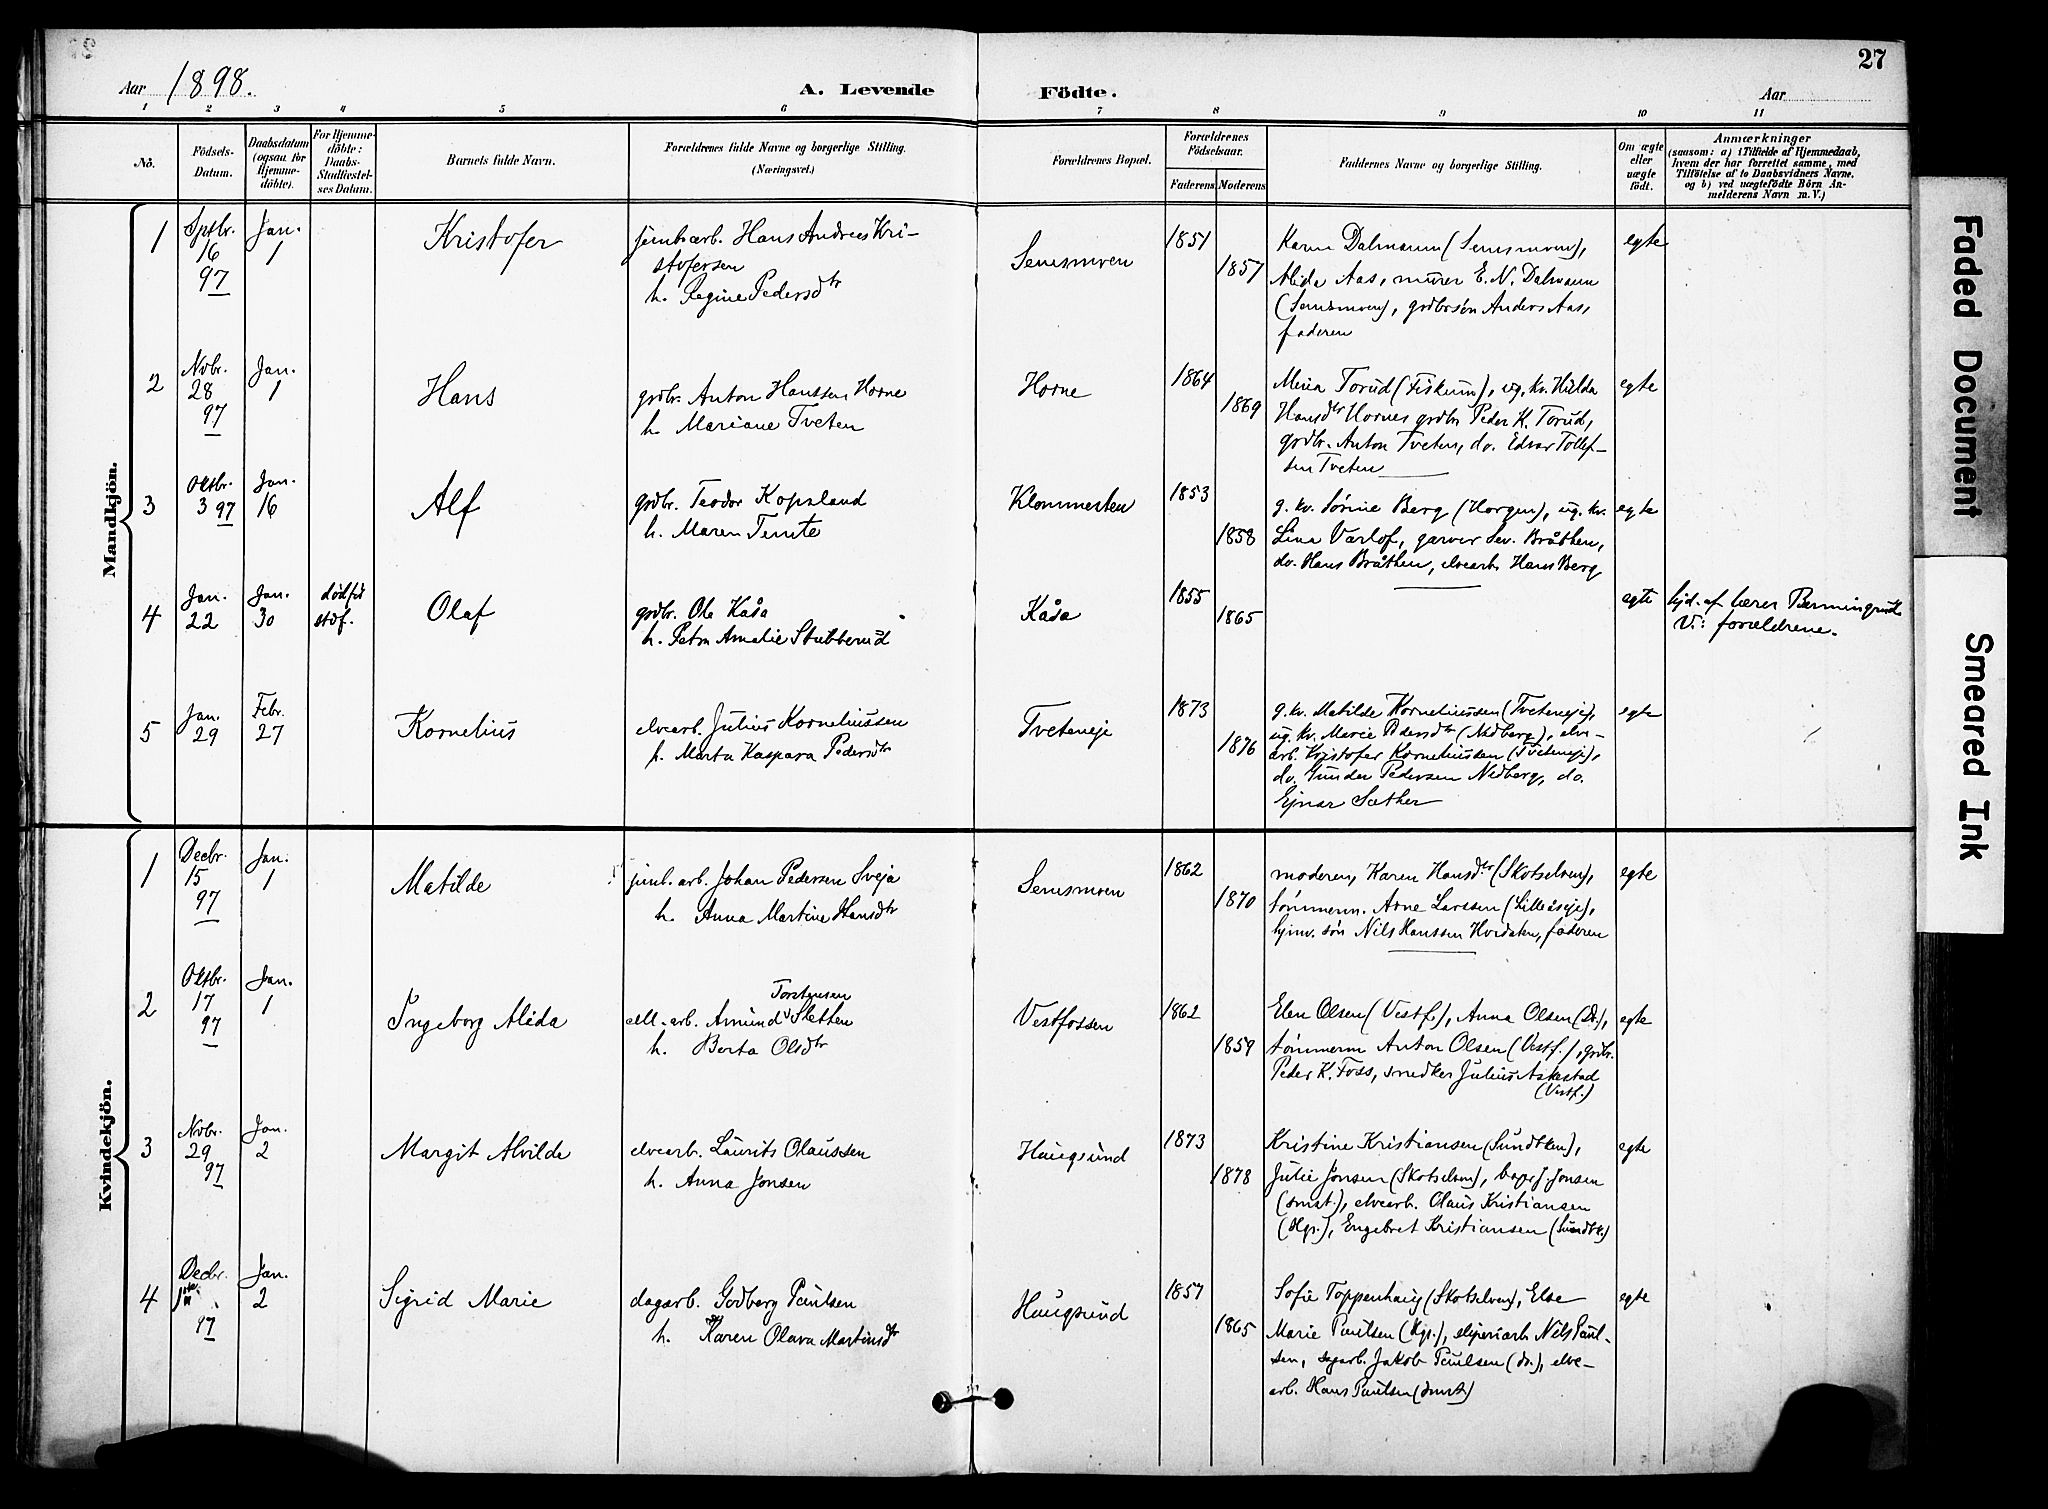 27
Aar 1898.
A. Levende Födte.
Aar
1 2 3 4 5 6 7 8 9 10 11
No.
Födsels-Datum.
Daabsdatum (ogsaa for Hjemme-döbte).
For Hjemme-döbte: Daabs-Stadfæstel-ses Datum.
Barnets fulde Navn.
Forældrenes fulde Navne og borgerlige Stilling.
(Næringsvei.)
Forældrenes Bopæl.
Forældrenes Födselsaar.
Faderens Moderens
Faddernes Navne og borgerlige Stilling.
Om ægte eller uægte födt.
Anmærkninger
(saasom: a) i Tilfælde af Hjemmedaab,
hvem der har forrettet samme, med
Tilföielse af to Daabsvidners Navne,
og b) ved uægtefödte Börn An-
melderens Navn m. V.)
Mandkjön.
1 Sptbr. 16 97 Jan. 1 Kristofer
jernb.arb. Hans Andreas Kri-
stofersen
h. Regine Pedersdtr
Semsmoen 1851 1857
Karen Dalmann (Semsmoen),
Alida Aas, murer E. N. Dalmann
(Semsmoen), grdbrsøn Anders Aas,
faderen
egte
2 Novbr. 28 97 Jan. 1 Hans
grdbr. Anton Hanssen Horne
h. Mariane Tveten
Horne 1864 1869
Torud (Fiskum), ug. kv. Hilda
Hansdtr Hornes grdbr Peder K. Torud,
grdbr. Anton Tveten, do. Edvar Tollef-
sen Tveten
egte
3 Oktbr. 3 97 Jan. 16 Alf
grdbr. Teodor Kopsland
h. Maren Temte
Klommesten 1853 1858
g. kv. Sørine Berg (Horgen), ug. kv.
Lina Varlof, garver Sev. Bråthen,
do. Hans Bråthen, elvearb Hans Berg
egte
4 Jan. 22 Jan. 30 død før stdf. Olaf
grdbr. Ole Kåsa
h. Petra Amalie Stubberud
Kåsa 1855 1865
egte
hjd. af lærer
V.: forældrene.
5 Jan. 29 Febr. 27 Kornelius
elvearb. Julius Korneliussen
h. Marta Kaspara Pedersdtr
Tveteneje 1873 1876
g. kv. Matilde Korneliussen (Tveteneje),
ug. kv. Marie Pedersdtr (Nedberg), elve-
arb. Kristofer Korneliussen (Tveteneje),
do. Gunder Pedersen Nedberg, do.
Ejnar Sæther
egte
Kvindekjön.
1 Decbr. 15 97 Jan. 1 Matilde
jernb. arb. Johan Pedersen Sveja
h. Anna Martine Hansdtr
Semsmoen 1862 1870
moderen, Karen Hansdtr (Skotselven),
tømmerm. Arne Larssen (Lilleåseje),
hjmv. søn Nils Hanssen Hvidsten, faderen
egte
2 Oktbr. 17 97 Jan. 1 Ingeborg Alida
Torstensen
cell. arb. Amund Sletten
h. Berta Olsdtr
Vestfossen 1862 1859
Elen Olsen (Vestf.), Anna Olsen (Do.),
tømmerm Anton Olsen (Vestf.), grdbr.
Peder K. Foss, snedker Julius Askestad
(Vestf.)
egte
3 Novbr. 29 97 Jan. 2 Margit Alvilde
elvearb. Laurits Olaussen
h. Anna Jonsen
Haugsund 1873 1878
Kristine Kristiansen (Sundbken),
Julie Jonsen (Skotselven), J. Jonsen
(smst.), elvearb. Olaus Kristiansen
(Hgs.), Engebret Kristiansen (Sundbk.)
egte
4 Decbr. 97 Jan. 2 Sigrid Marie
dagarb. Godberg Paulsen
h. Karen Olava Martinsdtr
Haugsund 1857 1865
Sofie Toppenhaug (Skotselven), Else
Marie Paulsen (Hgs.), sliperiarb Nils Paul-
sen, sagarb. Jakob Paulsen (do.), elve-
arb. Hans Paulsen (smst)
egte
Faded Document
Smeared Ink